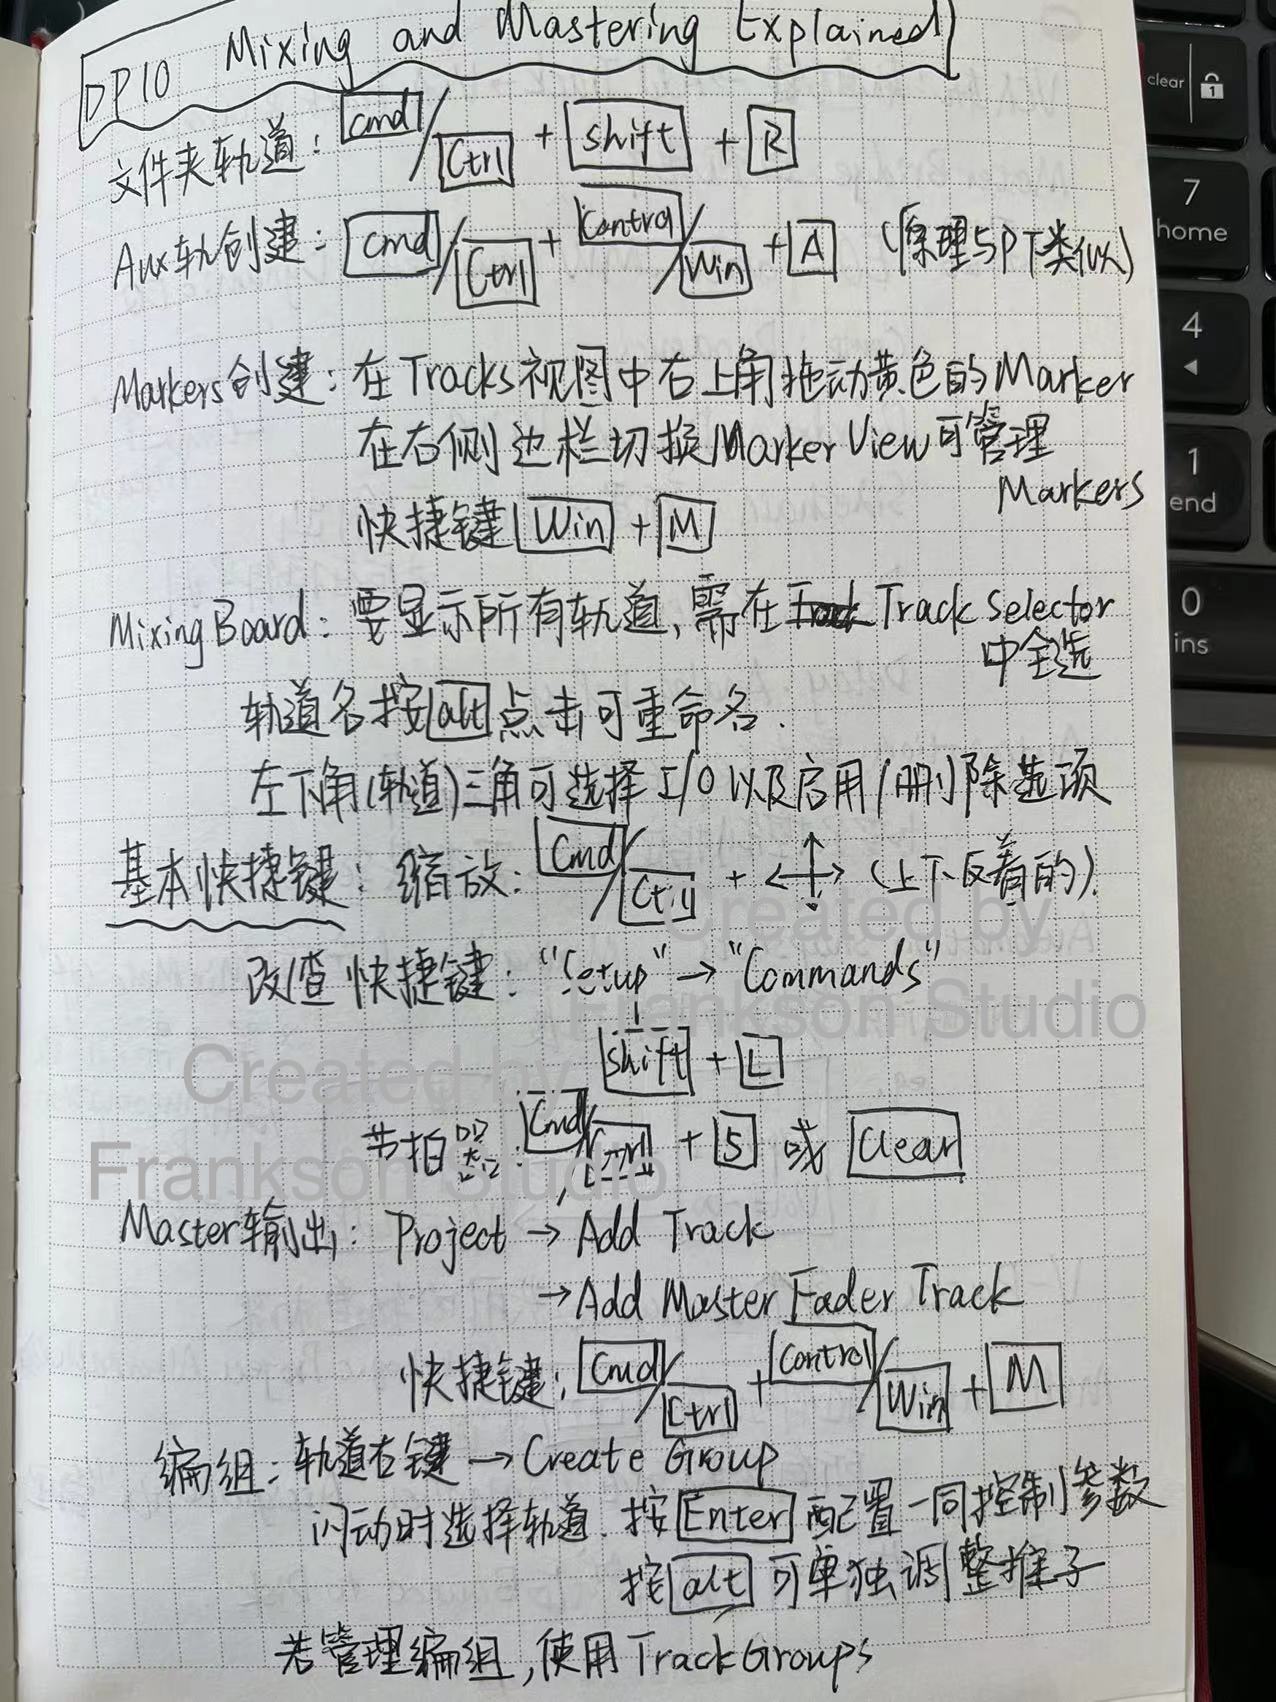 DP10 Mixing and Mastering Explained
文件夹轨道： cmd/Ctrl + shift + R
Aux轨创建： cmd/Ctrl + Control/Win + A （原理与PT类似）
Markers创建：在Tracks视图中右上角拖动黄色的Marker
在右侧边栏切换Marker View可管理
Markers
快捷键 Win + M
Mixing Board：要显示所有轨道，需在 Track Selector
中全选
轨道名按alt点击可重命名.
左下角(轨道)三角可选择I/O以及启用/删除选项
基本快捷键：缩放： Cmd/Ctrl + ←↑↓→ （上下反着的）.
改/查快捷键："Setup" → "Commands"
shift + L
节拍器：Cmd/Ctrl + 5 或 Clear
Master输出： Project → Add Track
→ Add Master Fader Track
快捷键：Cmd/Ctrl + Control/Win + M
编组：轨道右键 → Create Group
闪动时选择轨道. 按 Enter 配置一同控制参数
按 alt 可单独调整推子
若管理编组，使用Track Groups
Created by
Frankson Studio
Created by
Frankson Studio
clear
7
home
4
1
end
0
ins